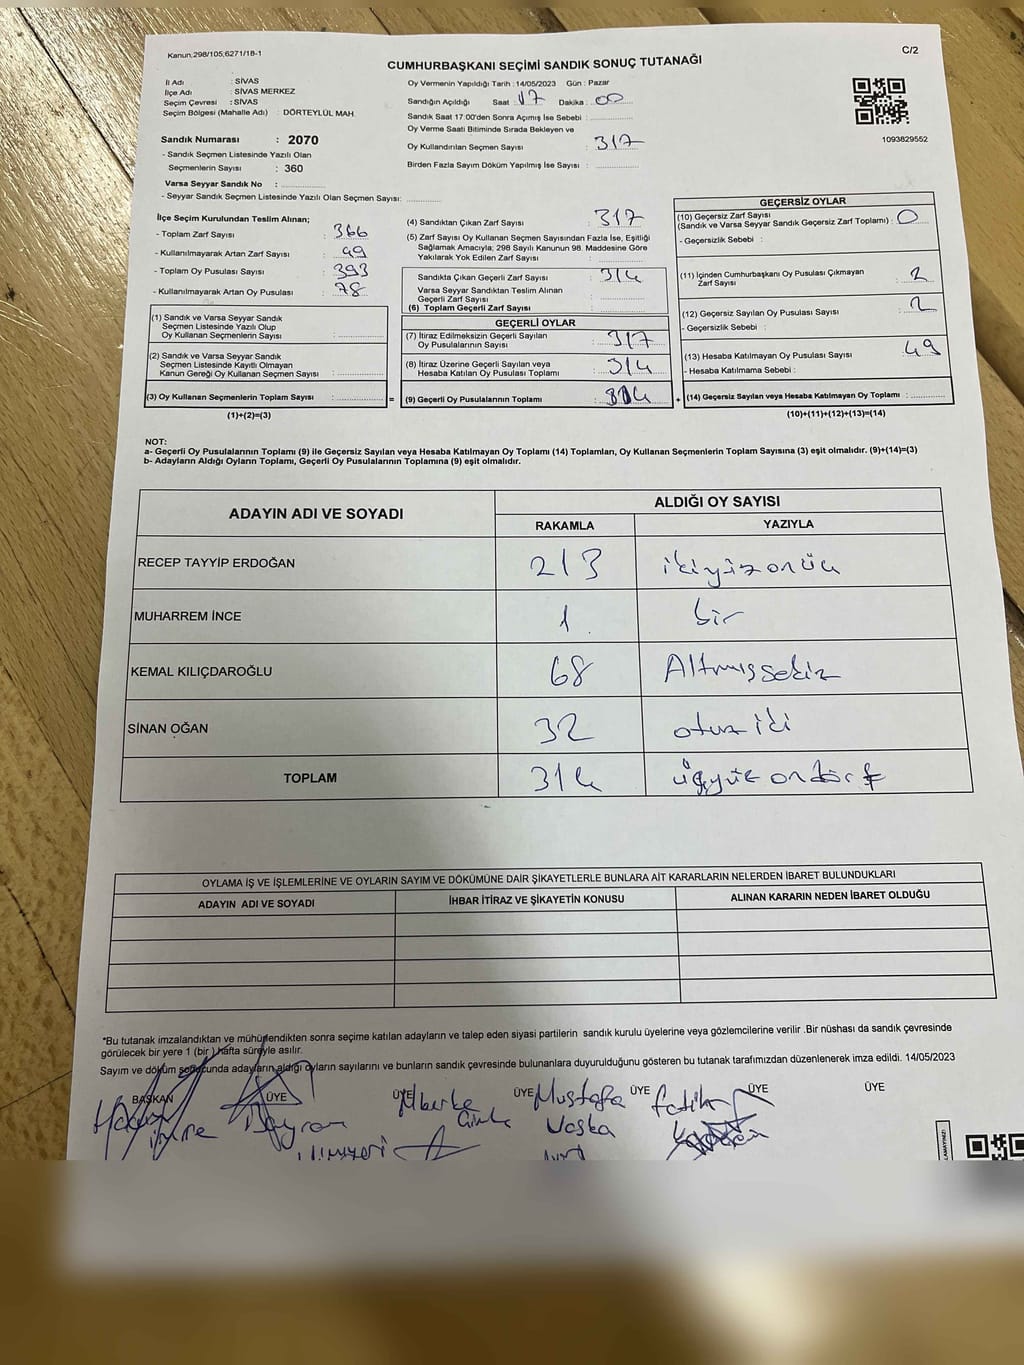 Kanun.298/105;6271/18-1
C/2
CUMHURBAŞKANI SEÇİMİ SANDIK SONUÇ TUTANAĞI
İl Adı : SİVAS
İlçe Adı : SİVAS MERKEZ
Seçim Çevresi : SİVAS
Seçim Bölgesi (Mahalle Adı) : DÖRTEYLÜL MAH.
Sandık Numarası : 2070
- Sandık Seçmen Listesinde Yazılı Olan
Seçmenlerin Sayısı : 360
Varsa Seyyar Sandık No :
- Seyyar Sandık Seçmen Listesinde Yazılı Olan Seçmen Sayısı:
Oy Vermenin Yapıldığı Tarih : 14/05/2023 Gün : Pazar
Sandığın Açıldığı Saat : 17 Dakika : 00
Sandık Saat 17:00'den Sonra Açımış İse Sebebi :
Oy Verme Saati Bitiminde Sırada Bekleyen ve
Oy Kullandırılan Seçmen Sayısı : 317
Birden Fazla Sayım Döküm Yapılmış İse Sayısı :
1093829552
İlçe Seçim Kurulundan Teslim Alınan;
- Toplam Zarf Sayısı : 366
- Kullanılmayarak Artan Zarf Sayısı : 49
- Toplam Oy Pusulası Sayısı : 393
- Kullanılmayarak Artan Oy Pusulası : 78
(1) Sandık ve Varsa Seyyar Sandık
Seçmen Listesinde Yazılı Olup
Oy Kullanan Seçmenlerin Sayısı :
(2) Sandık ve Varsa Seyyar Sandık
Seçmen Listesinde Kayıtlı Olmayan
Kanun Gereği Oy Kullanan Seçmen Sayısı :
(3) Oy Kullanan Seçmenlerin Toplam Sayısı : =
(1)+(2)=(3)
(4) Sandıktan Çıkan Zarf Sayısı : 317
(5) Zarf Sayısı Oy Kullanan Seçmen Sayısından Fazla İse, Eşitliği
Sağlamak Amacıyla; 298 Sayılı Kanunun 98. Maddesine Göre
Yakılarak Yok Edilen Zarf Sayısı :
Sandıkta Çıkan Geçerli Zarf Sayısı : 314
Varsa Seyyar Sandıktan Teslim Alınan
Geçerli Zarf Sayısı :
(6) Toplam Geçerli Zarf Sayısı :
GEÇERLİ OYLAR
(7) İtiraz Edilmeksizin Geçerli Sayılan
Oy Pusulalarının Sayısı : 317
(8) İtiraz Üzerine Geçerli Sayılan veya
Hesaba Katılan Oy Pusulası Toplamı : 314
(9) Geçerli Oy Pusulalarının Toplamı : 314 +
GEÇERSİZ OYLAR
(10) Geçersiz Zarf Sayısı
(Sandık ve Varsa Seyyar Sandık Geçersiz Zarf Toplamı) : 0
- Geçersizlik Sebebi :
(11) İçinden Cumhurbaşkanı Oy Pusulası Çıkmayan
Zarf Sayısı : 2
(12) Geçersiz Sayılan Oy Pusulası Sayısı : 2
- Geçersizlik Sebebi :
(13) Hesaba Katılmayan Oy Pusulası Sayısı : 49
- Hesaba Katılmama Sebebi :
(14) Geçersiz Sayılan veya Hesaba Katılmayan Oy Toplamı :
(10)+(11)+(12)+(13)=(14)
NOT:
a- Geçerli Oy Pusulalarının Toplamı (9) ile Geçersiz Sayılan veya Hesaba Katılmayan Oy Toplamı (14) Toplamları, Oy Kullanan Seçmenlerin Toplam Sayısına (3) eşit olmalıdır. (9)+(14)=(3)
b- Adayların Aldığı Oyların Toplamı, Geçerli Oy Pusulalarının Toplamına (9) eşit olmalıdır.
ADAYIN ADI VE SOYADI ALDIĞI OY SAYISI
RAKAMLA YAZIYLA
RECEP TAYYİP ERDOĞAN 213 ikiyüzonüç
MUHARREM İNCE 1 bir
KEMAL KILIÇDAROĞLU 68 Altmışsekiz
SİNAN OĞAN 32 otuziki
TOPLAM 314 üçyüzondört
OYLAMA İŞ VE İŞLEMLERİNE VE OYLARIN SAYIM VE DÖKÜMÜNE DAİR ŞİKAYETLERLE BUNLARA AİT KARARLARIN NELERDEN İBARET BULUNDUKLARI
ADAYIN ADI VE SOYADI İHBAR İTİRAZ VE ŞİKAYETİN KONUSU ALINAN KARARIN NEDEN İBARET OLDUĞU
*Bu tutanak imzalandıktan ve mühürlendikten sonra seçime katılan adayların ve talep eden siyasi partilerin sandık kurulu üyelerine veya gözlemcilerine verilir .Bir nüshası da sandık çevresinde
görülecek bir yere 1 (bir ) hafta süreyle asılır.
Sayım ve döküm sonucunda adayların aldığı oyların sayılarını ve bunların sandık çevresinde bulunanlara duyurulduğunu gösteren bu tutanak tarafımızdan düzenlenerek imza edildi. 14/05/2023
BAŞKAN ÜYE ÜYE ÜYE ÜYE ÜYE ÜYE
Mustafa Fatih
Bayram